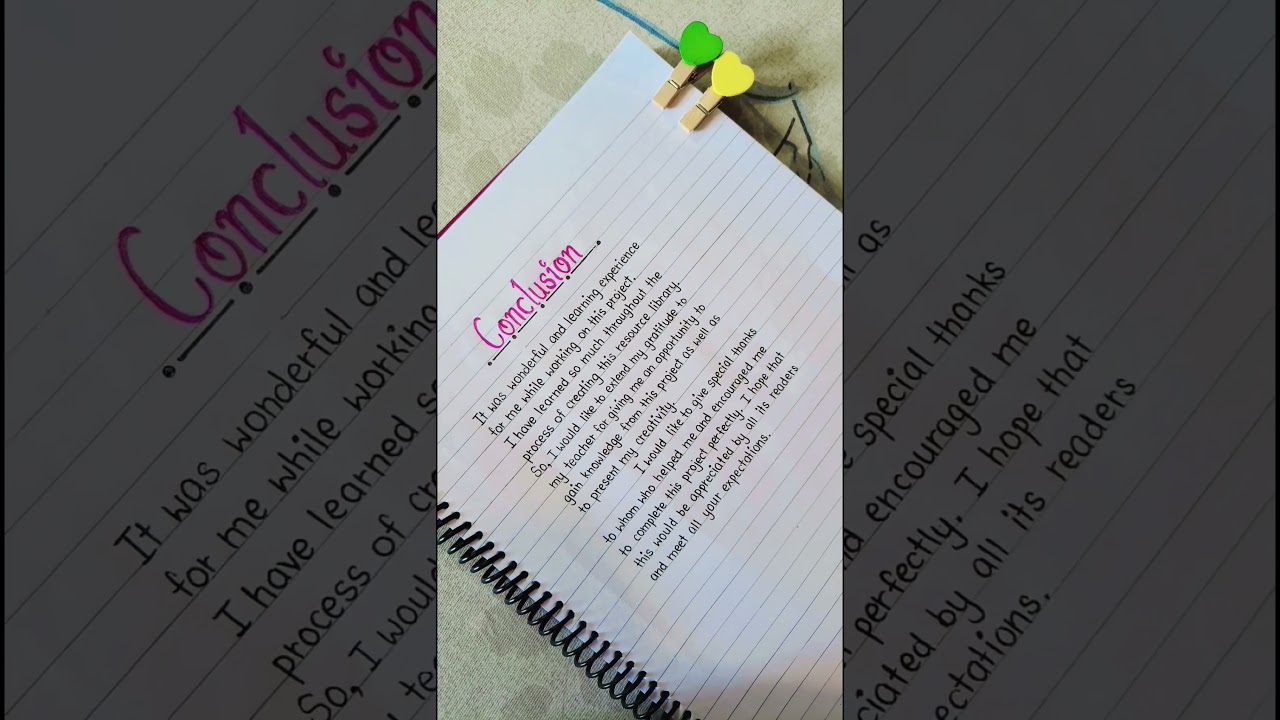 Conclusion
It was wonderful and learning experience
for me while working on this project.
I have learned so much throughout the
process of creating this resource library.
So, I would like to extend my gratitude to
my teacher for giving me an opportunity to
gain knowledge from this project as well as
to present my creativity.
I would like to give special thanks
to whom who helped me and encouraged me
to complete this project perfectly. I hope that
this would be appreciated by all its readers
and meet all your expectations.